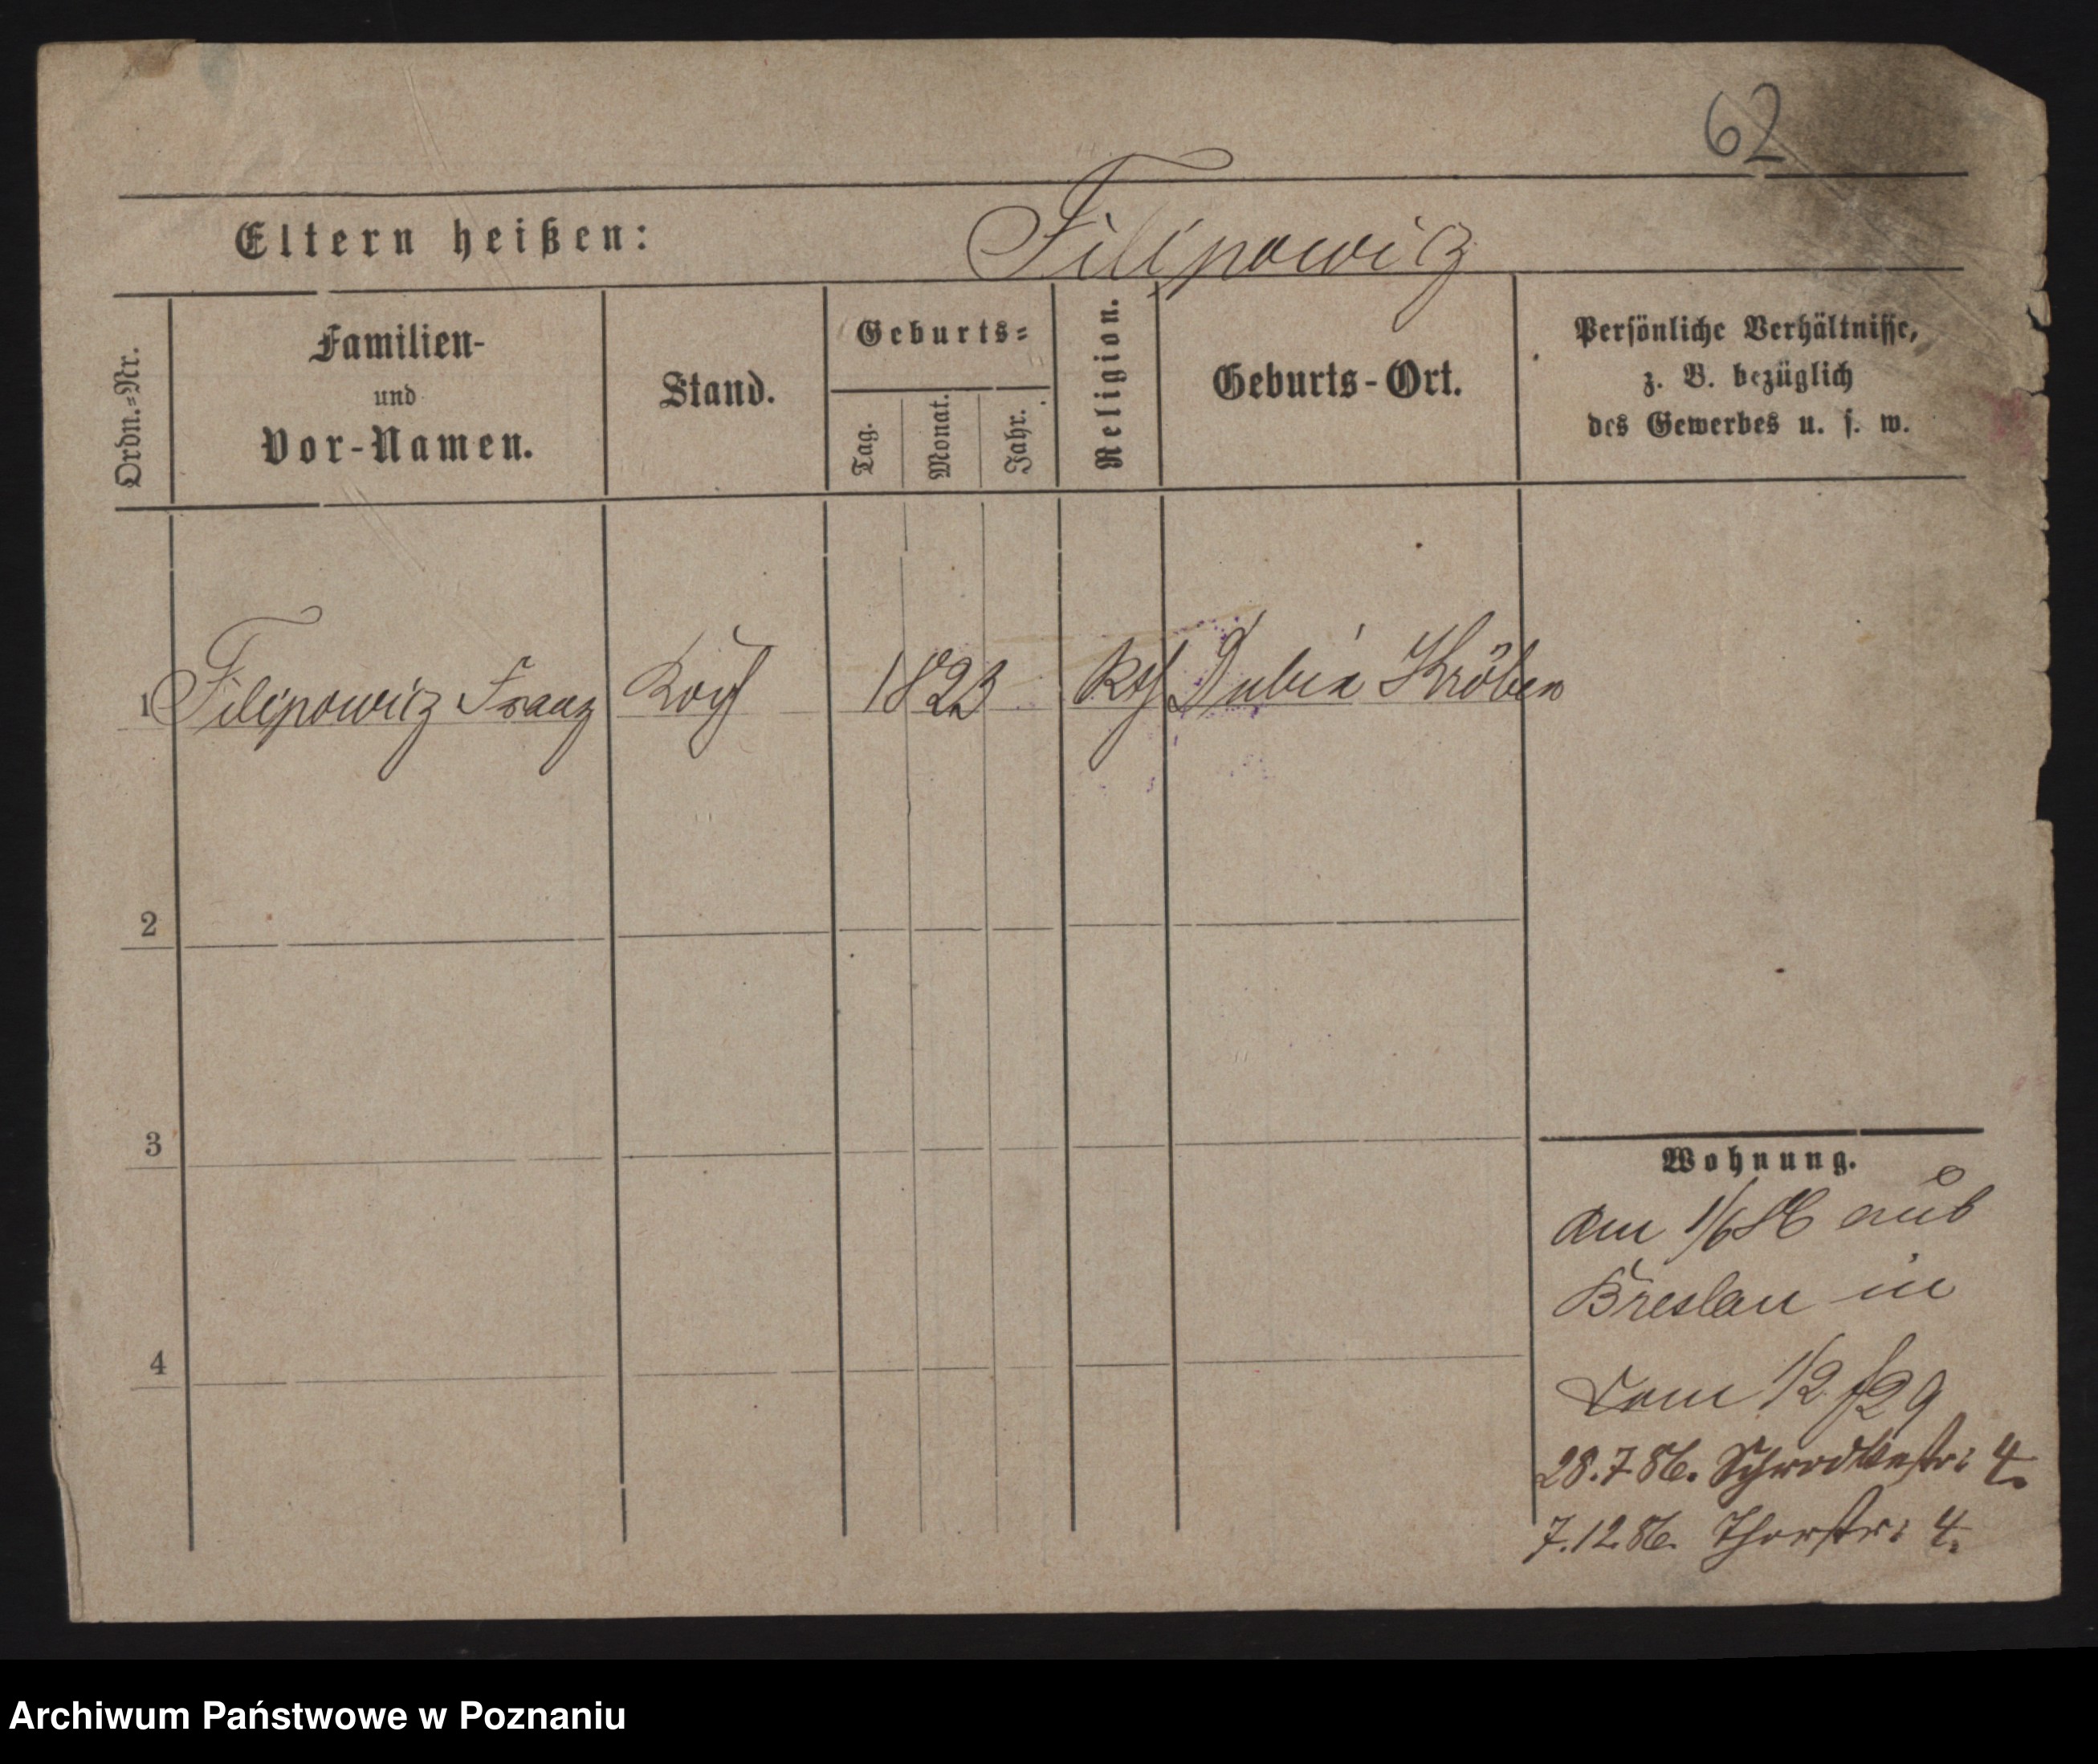 62
Eltern heißen: Filipowicz
Ordn.=Nr.
Familien-
und
Vor-Namen.
Stand.
Geburts=
Tag.
Monat.
Jahr.
Religion.
Geburts-Ort.
Persönliche Verhältnisse,
z. B. bezüglich
des Gewerbes u. s. w.
1 Filipowicz Franz Koch 1823 Kth Dubin Kröben
2
3
4
Wohnung.
Am 1/6 86 aus
Breslau in
28.7.86. Schrodkastr: 4.
7.12.86. Thorstr: 4.
Archiwum Państwowe w Poznaniu